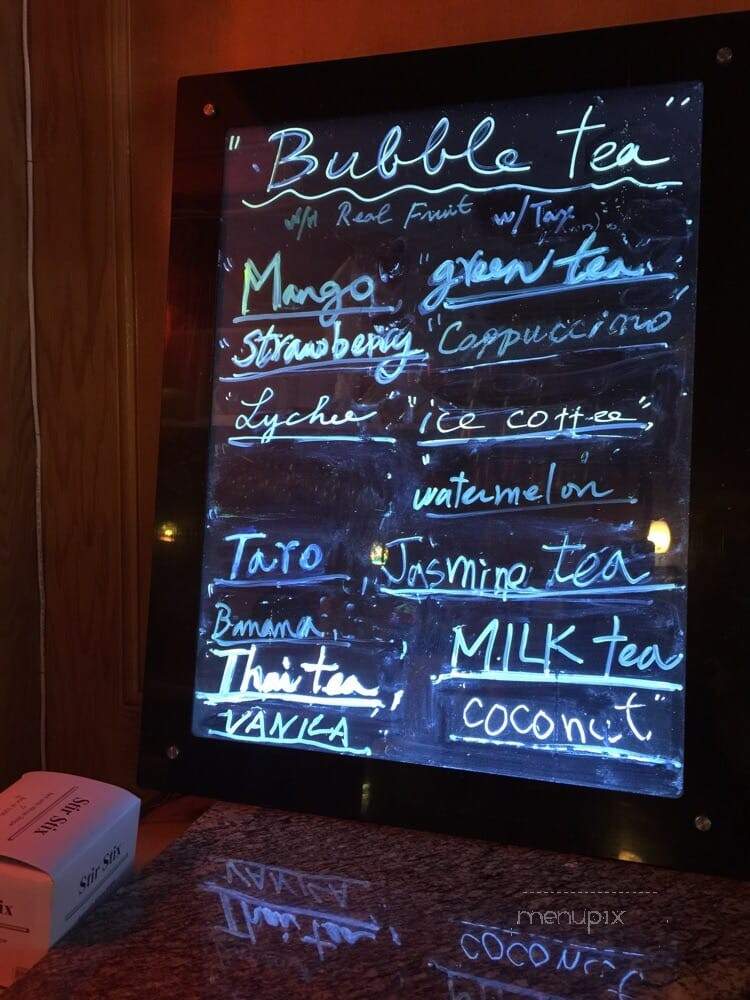 "Bubble tea"
Real Fruit w/Tax
"Mango" "green tea"
"Strawberry" "Cappuccino"
"Lychee" "ice coffee"
"watermelon
Taro Jasmine tea
Banana
MILK tea
Thai tea
VANILA
COCONUT"
Stir Stix
Stir Stix
menupix
VANILA
Thai tea
COCONUT